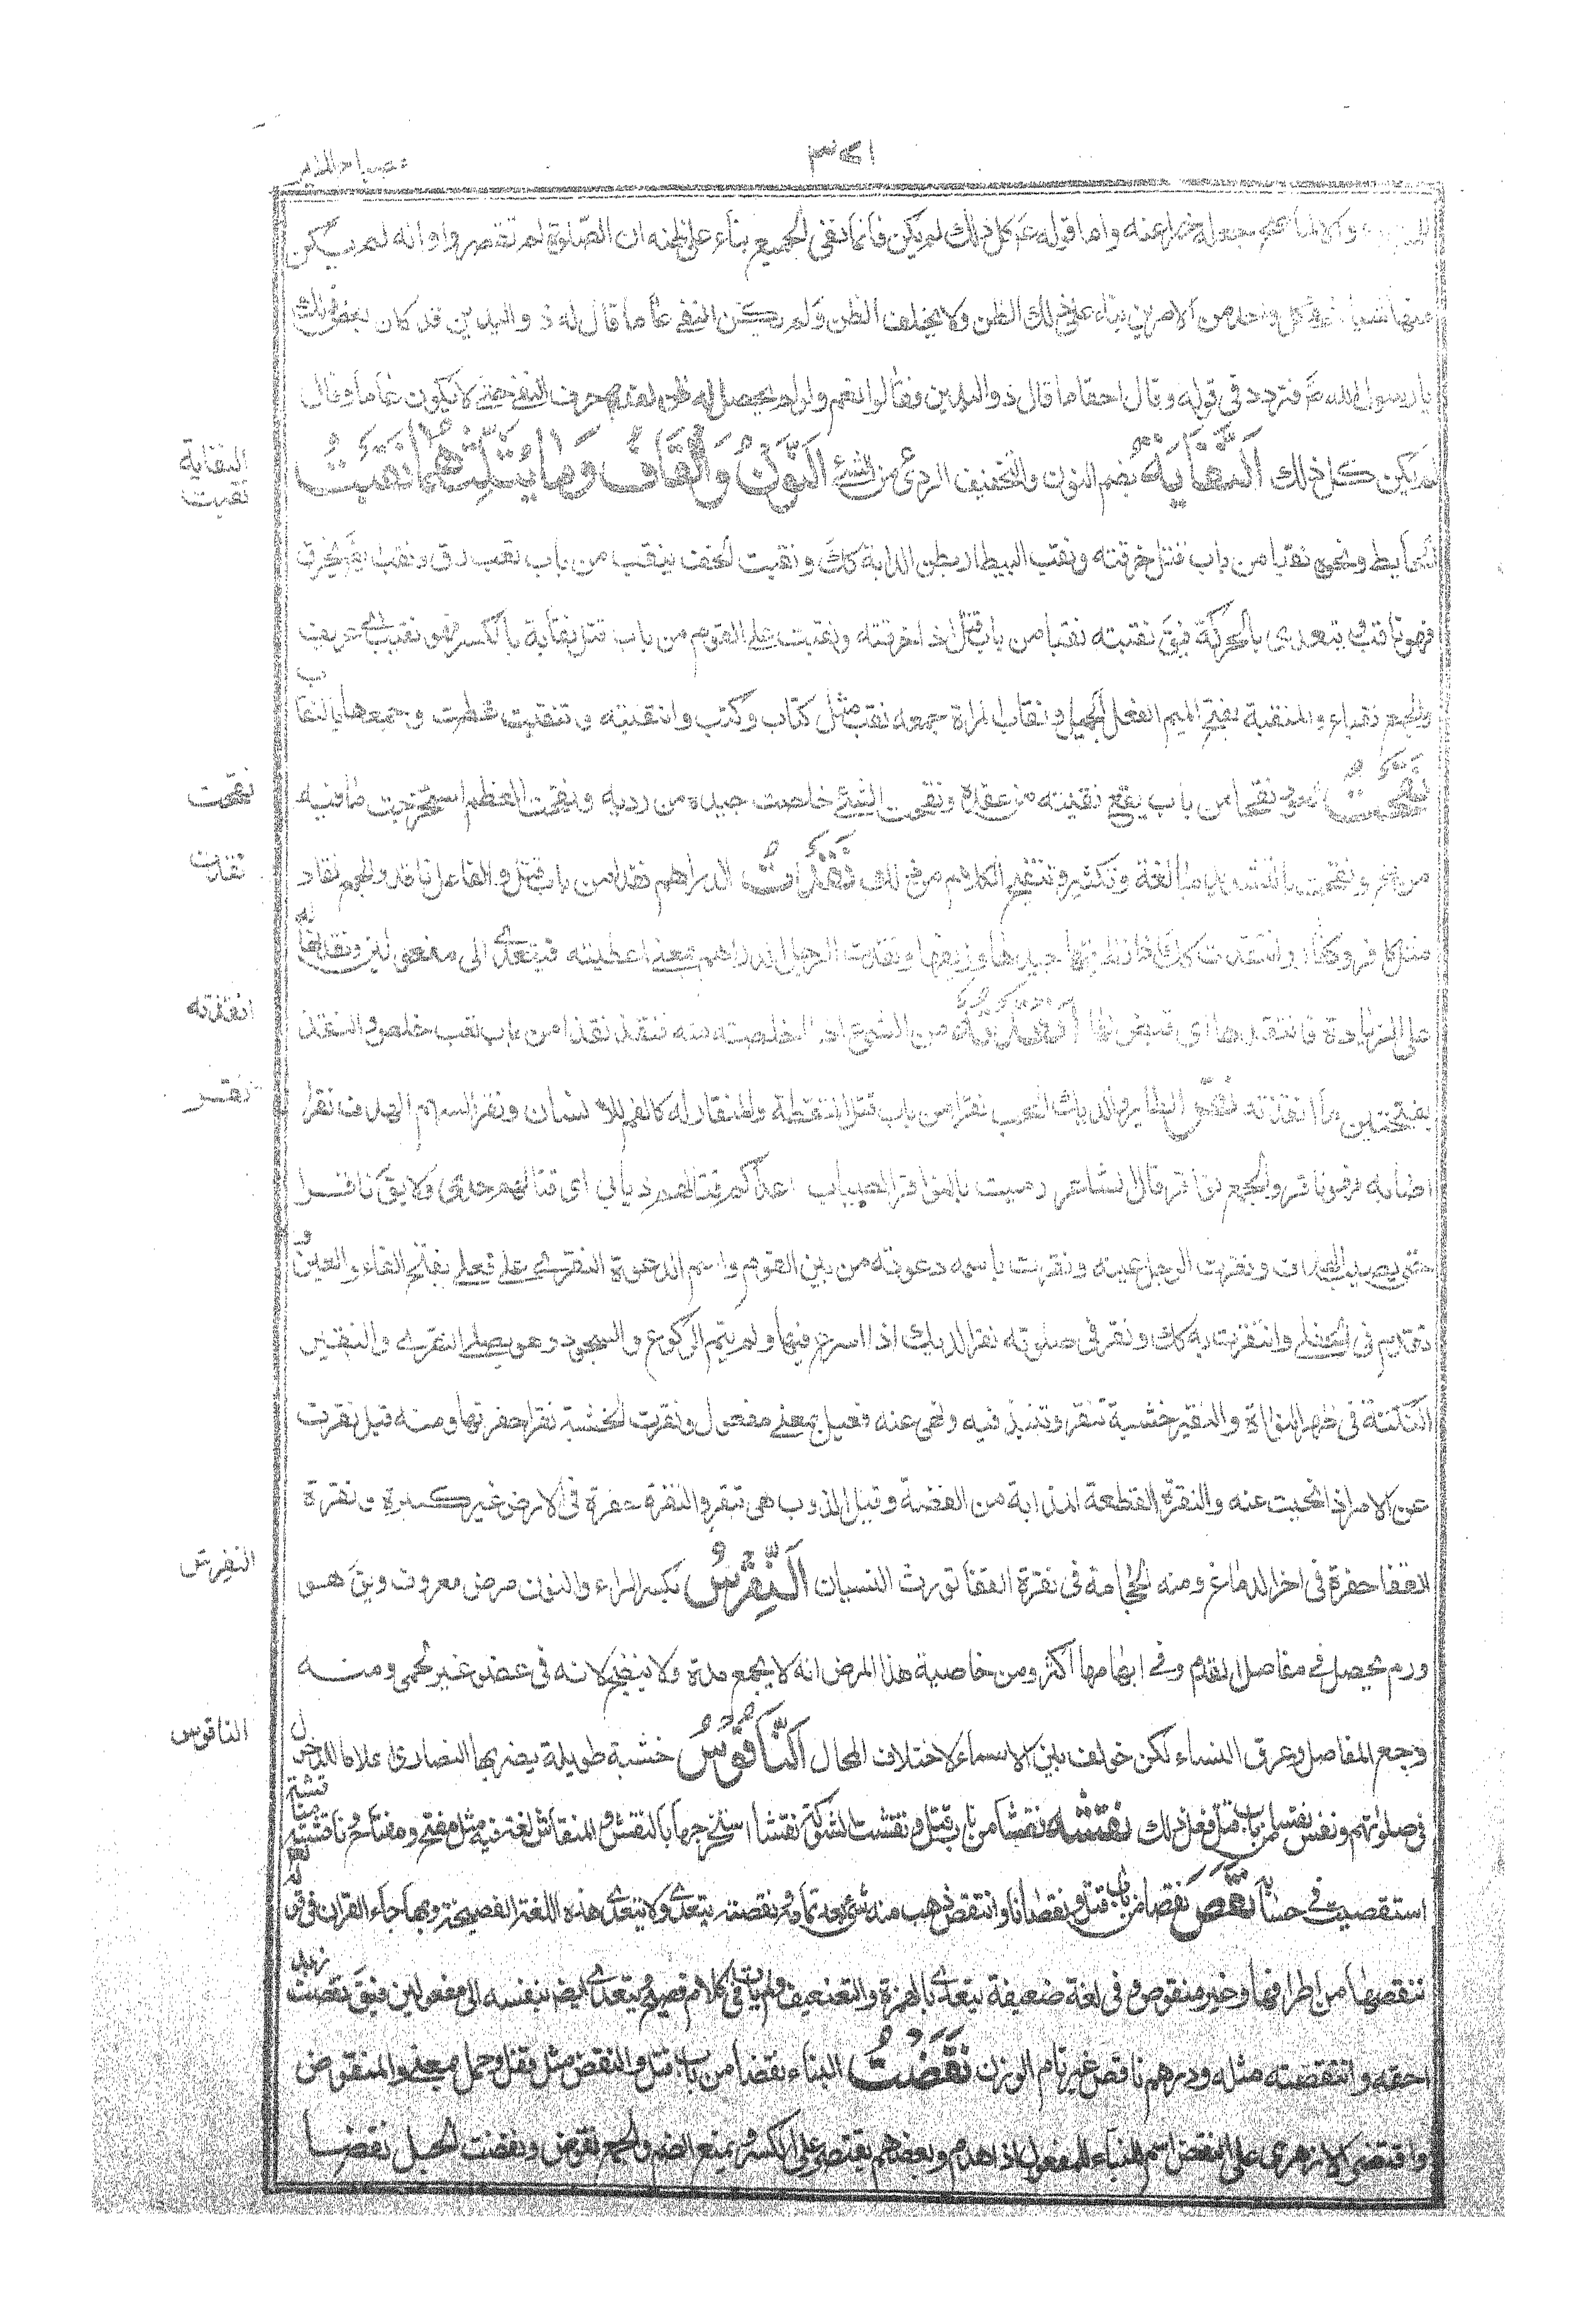 مصباح المنير
٣٤١
والا لما جعله عنه واما قوله عم كل ذلك لم يكن فانما نفى الجميع بناء على ظنه ان الصلوة لم تقصر واوانه لم يكن
منها شيئا فنفى كل واحد من الامرين بناء على ذلك الظن ولا يخلف الظن ولم يكن النفى عاما قال له ذو اليدين قد كان بعض ذلك
يا رسول الله فتردد فى قوله وقال احقا ما قال ذو اليدين فقالوا نعم ولو لم يحصل له ظن لقدم حرف النفى حتى لا يكون عاما وقال
لم يكن كل ذلك النفاية بضم النون والتخفيف الردئ من الشئ النون والقاف وما يثلثهما نقبت
الحايط ونحوه نقبا من باب قتل خرقته ونقب البيطار بطن الدابة كك ونقبت الخف ينقب من باب تعب رق ونقب يخرق
فهو ناقب يتعدى بالحركة فيق نقبته نقبا من باب قتل اذا خرقته ونقبت على القوم من باب قتل نقابة بالكسر فهو نقيب اى عريف
والجمع نقباء والمنقبة بفتح الميم الفعل الجميل ونقاب المراة جمعه نقب مثل كتاب وكتب وانتقبته وتنقبت غطت وجهها بالنقاب
نقحت العود نقحا من باب نفع نقيته من عقده ونقحت الشئ خلصت جيده من رديه ونقحت العظم استخرجت ما فيه
من مخ ونقحت بالتشديد مبالغة وتكثير وتنقيح الكلام من ذلك نقدت الدراهم نقدا من باب قتل والفاعل ناقد والجمع نقاد
مثل كافر وكفار وانتقدت كك اذا نظرتها جيدها وزيفها ونقدت الرجل الدراهم بمعنى اعطيته فيتعدى الى مفعولين ونقدتها له
على الزيادة فانتقدها اى قبضها انقذته من الشر اذا خلصته منه فنقذ نقذا من باب تعب خلص والنقذ
بفتحتين ما انقذته نقر الطاير الحب نقرا من باب قتل التقطه والمنقار له كالفم للانسان ونقر السهم الهدف نقرا
اصابه فهو ناقر والجمع نواقر قال الشاعر رميت بالنواقر الصياب اى قتالهم ولا يق ناقر
حتى يصيب الهدف ونقرت الرجل عبته ونقرت باسمه دعوته من بين القوم واسم الدعوة النقرى على فعلى بفتح الفاء والعين و
تقدم فى الجفلى وانتقرت به كك ونقر فى صلوته نقر الديك اذا اسرع فيها ولم يتم الركوع والسجود وهو يصلى النقرى والنقير
النكتة فى ظهر النواة والنقير خشبة تنقر وتنبذ فيه ونهى عنه فعيل بمعنى مفعول ونقرت الخشبة نقرا حفرتها ومنه قيل نقرت
عن الامر اذا بحثت عنه والنقرة القطعة المذابة من الفضة وقبل الذوب هى تبر والنقرة حفرة فى الارض غير كبيرة ونقرة
القفا حفرة فى اخر الدماغ ومنه الحجامة فى نقرة القفا تورث النسيان النقرس بكسر الراء والنون مرض معروف ويق هو
ورم يحصل فى مفاصل القدم وفى ابهامها اكثر ومن خاصية هذا المرض انه لا يجمع مدة ولا ينضج لانه فى عضو غير لحمى ومنه
وجع المفاصل وعرق النساء لكن خولف بين الاسماء لاختلاف المحال الناقوس خشبة طويلة يضربها النصارى اعلاما للدخول
فى صلوتهم ونقس نقسا من باب قتل فعل ذلك نقشه نقشا من باب قتل ونقشت الشوكة نقشا استخرجتها بالنقش والمنقاش لغة فيه مثل مفتح ومفتاح وناقشته مناقشة
استقصيت فى حسابه نقص نقصا من باب قتل ونقصانا وانتقص ذهب منه شئ بعد تمامه ونقصته يتعدى ولا يتعدى هذه اللغة الفصيحة وبها جاء القران فى قوله
ننقصها من اطرافها وغير منقوص وفى لغة ضعيفة يتعدى بالهمزة والتضعيف ولم يات فى كلام فصيح ويتعدى ايضا بنفسه الى مفعولين فيق نقصت زيدا
حقه وانتقصته مثله ودرهم ناقص غير تام الوزن نقضت البناء نقضا من باب قتل والنقض مثل قفل وحمل بمعنى المنقوض
واقتصر الازهرى على النقض اسم للبناء المفعول اذا هدم وبعضهم يقتصر على الكسر ويمنع الضم والجمع نقوض ونقضت الحبل نقضا
النفاية
نقبت
نقحت
نقدت
انقذته
نقر
النقرس
الناقوس